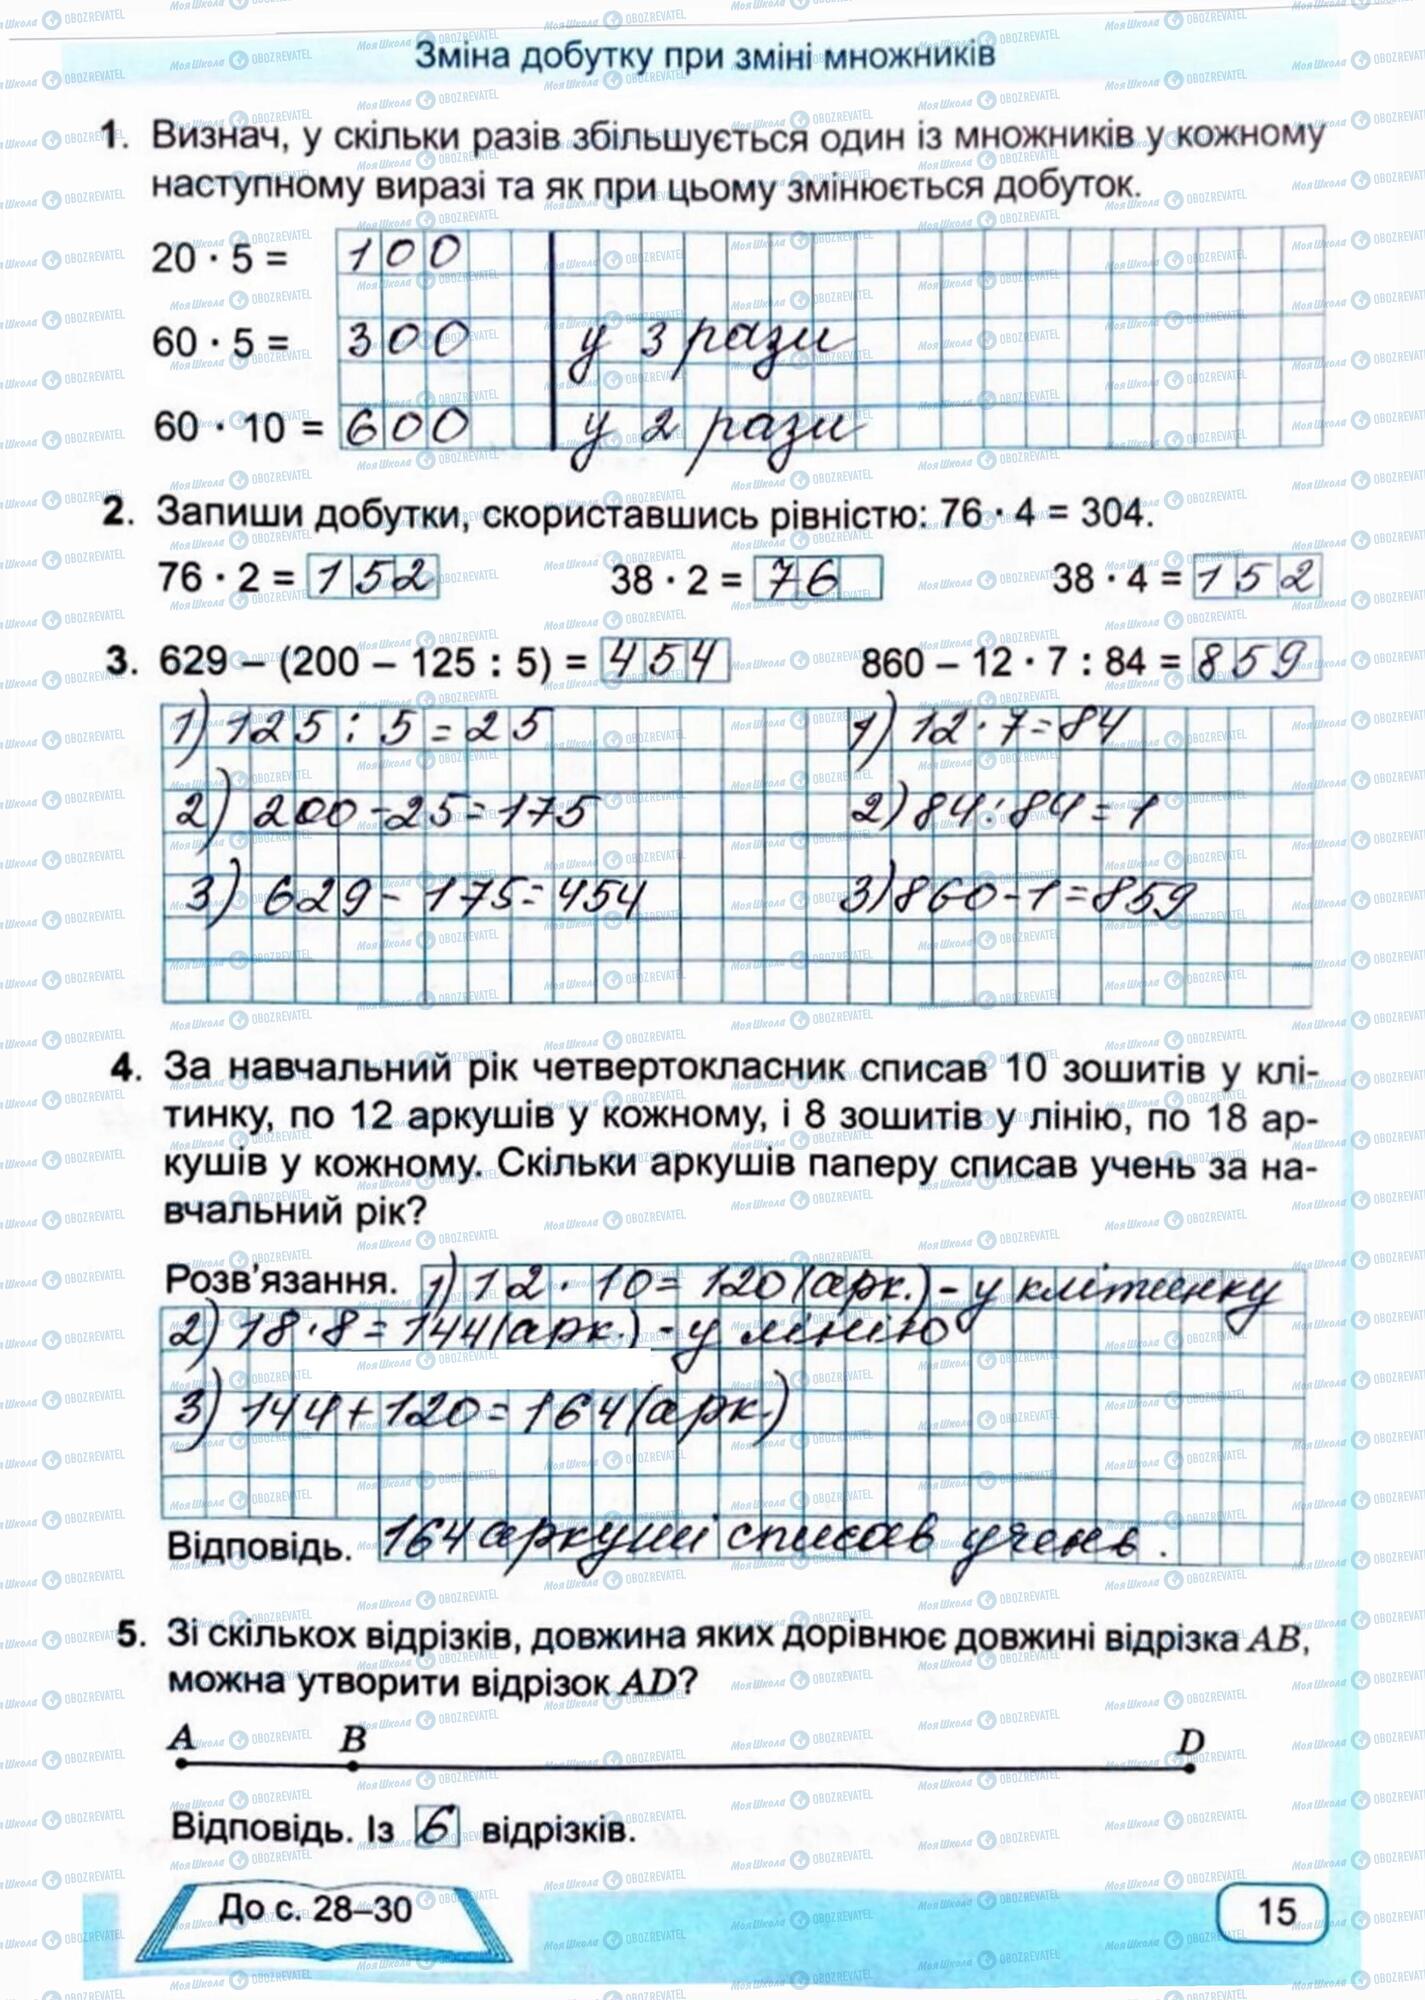 Зміна добутку при зміні множників
1. Визнач, у скільки разів збільшується один із множників у кожному
наступному виразі та як при цьому змінюється добуток.
20 · 5 = 100
60 · 5 = 300 у 3 рази
60 · 10 = 600 у 2 рази
2. Запиши добутки, скориставшись рівністю: 76 · 4 = 304.
76 · 2 = 152 38 · 2 = 76 38 · 4 = 152
3. 629 – (200 – 125 : 5) = 454 860 – 12 · 7 : 84 = 859
1) 125 : 5 = 25 1) 12 · 7 = 84
2) 200 - 25 = 175 2) 84 : 84 = 1
3) 629 - 175 = 454 3) 860 - 1 = 859
4. За навчальний рік четвертокласник списав 10 зошитів у клі-
тинку, по 12 аркушів у кожному, і 8 зошитів у лінію, по 18 ар-
кушів у кожному. Скільки аркушів паперу списав учень за на-
вчальний рік?
Розв'язання. 1) 12 · 10 = 120 (арк.) - у клітинку
2) 18 · 8 = 144 (арк.) - у лінію
3) 144 + 120 = 164 (арк.)
Відповідь. 164 аркуші списав учень.
5. Зі скількох відрізків, довжина яких дорівнює довжині відрізка AB,
можна утворити відрізок AD?
A B D
Відповідь. Із 6 відрізків.
До с. 28–30
15
МояШкола OBOZREVATEL